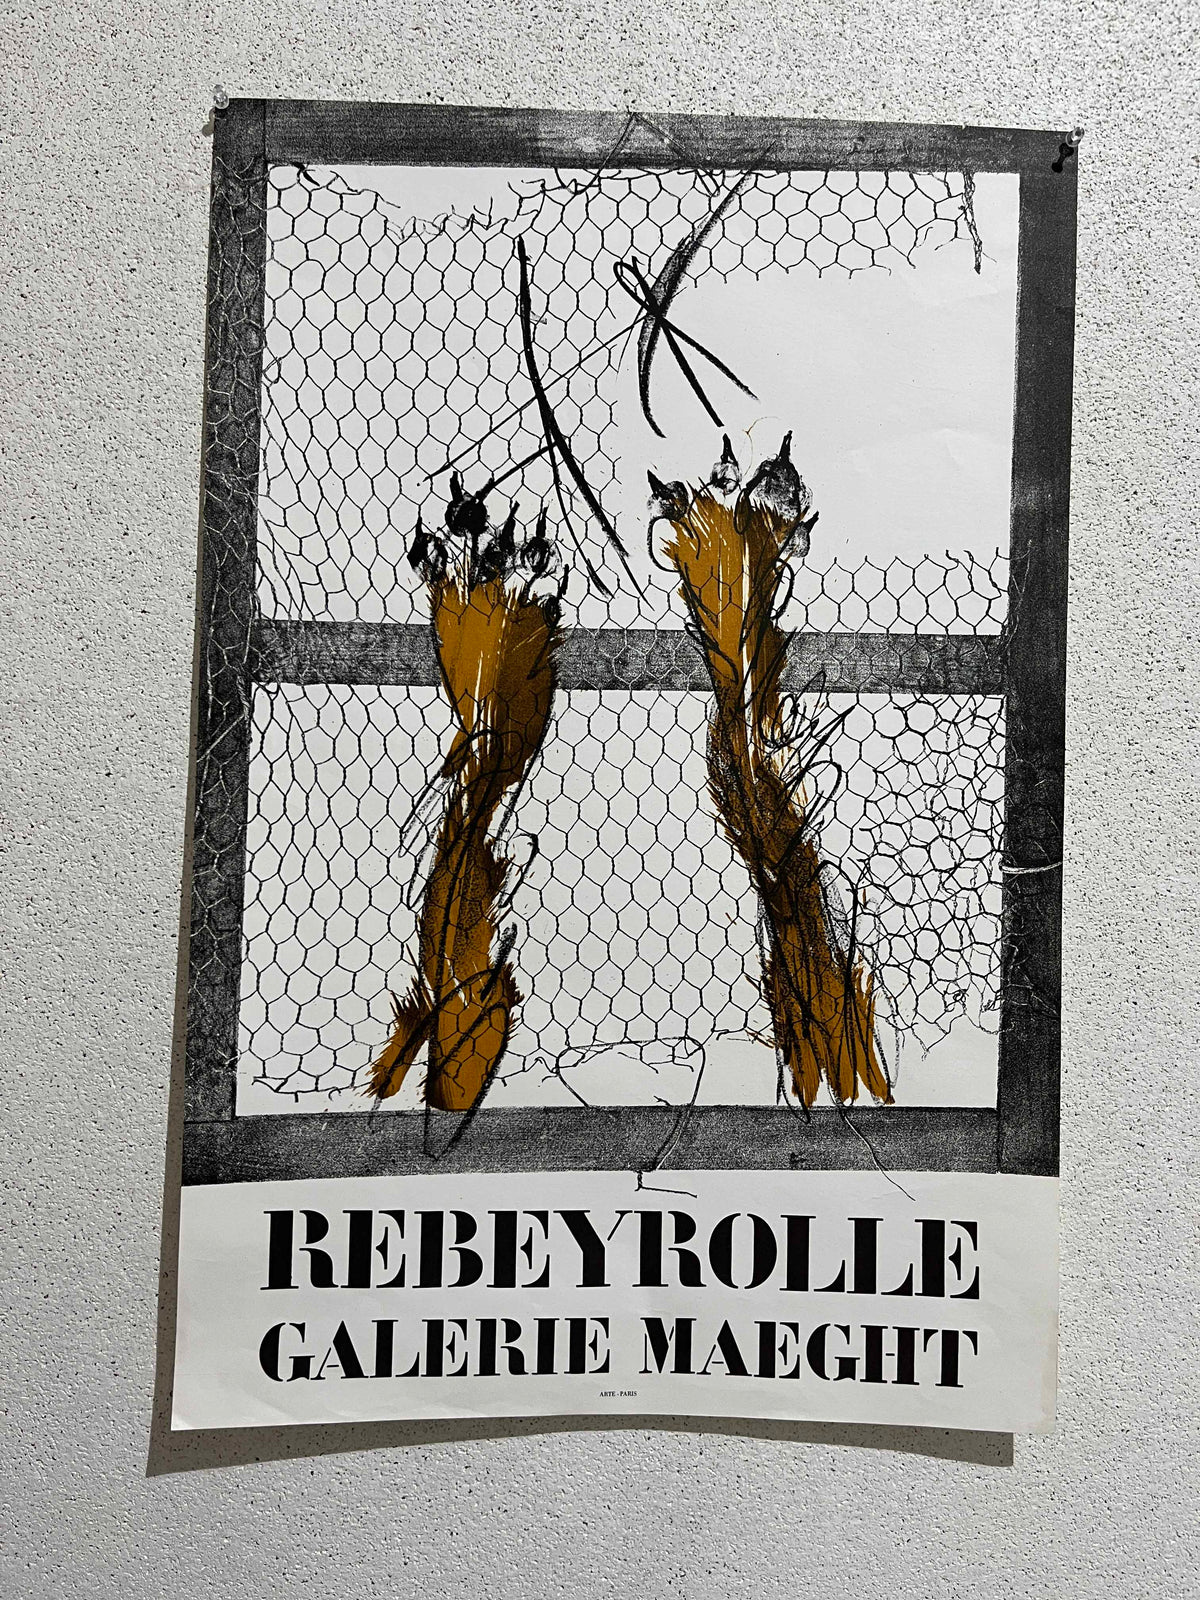 REBEYROLLE
GALERIE MAEGHT
ARTE - PARIS